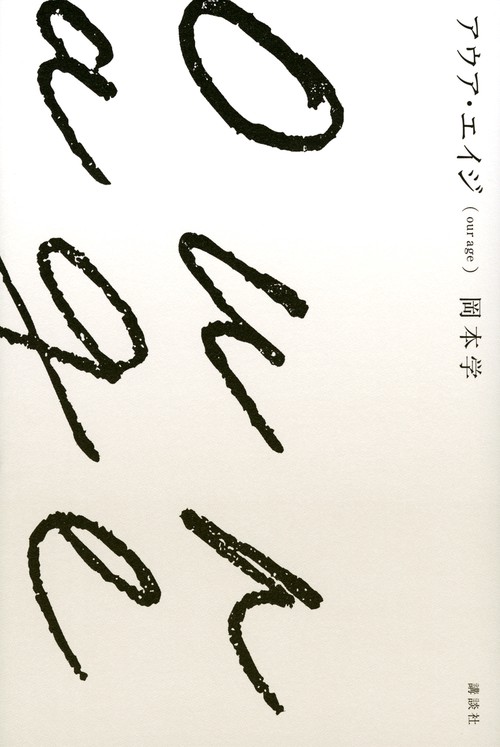 our
age
アウア・エイジ (our age) 岡本学
講談社